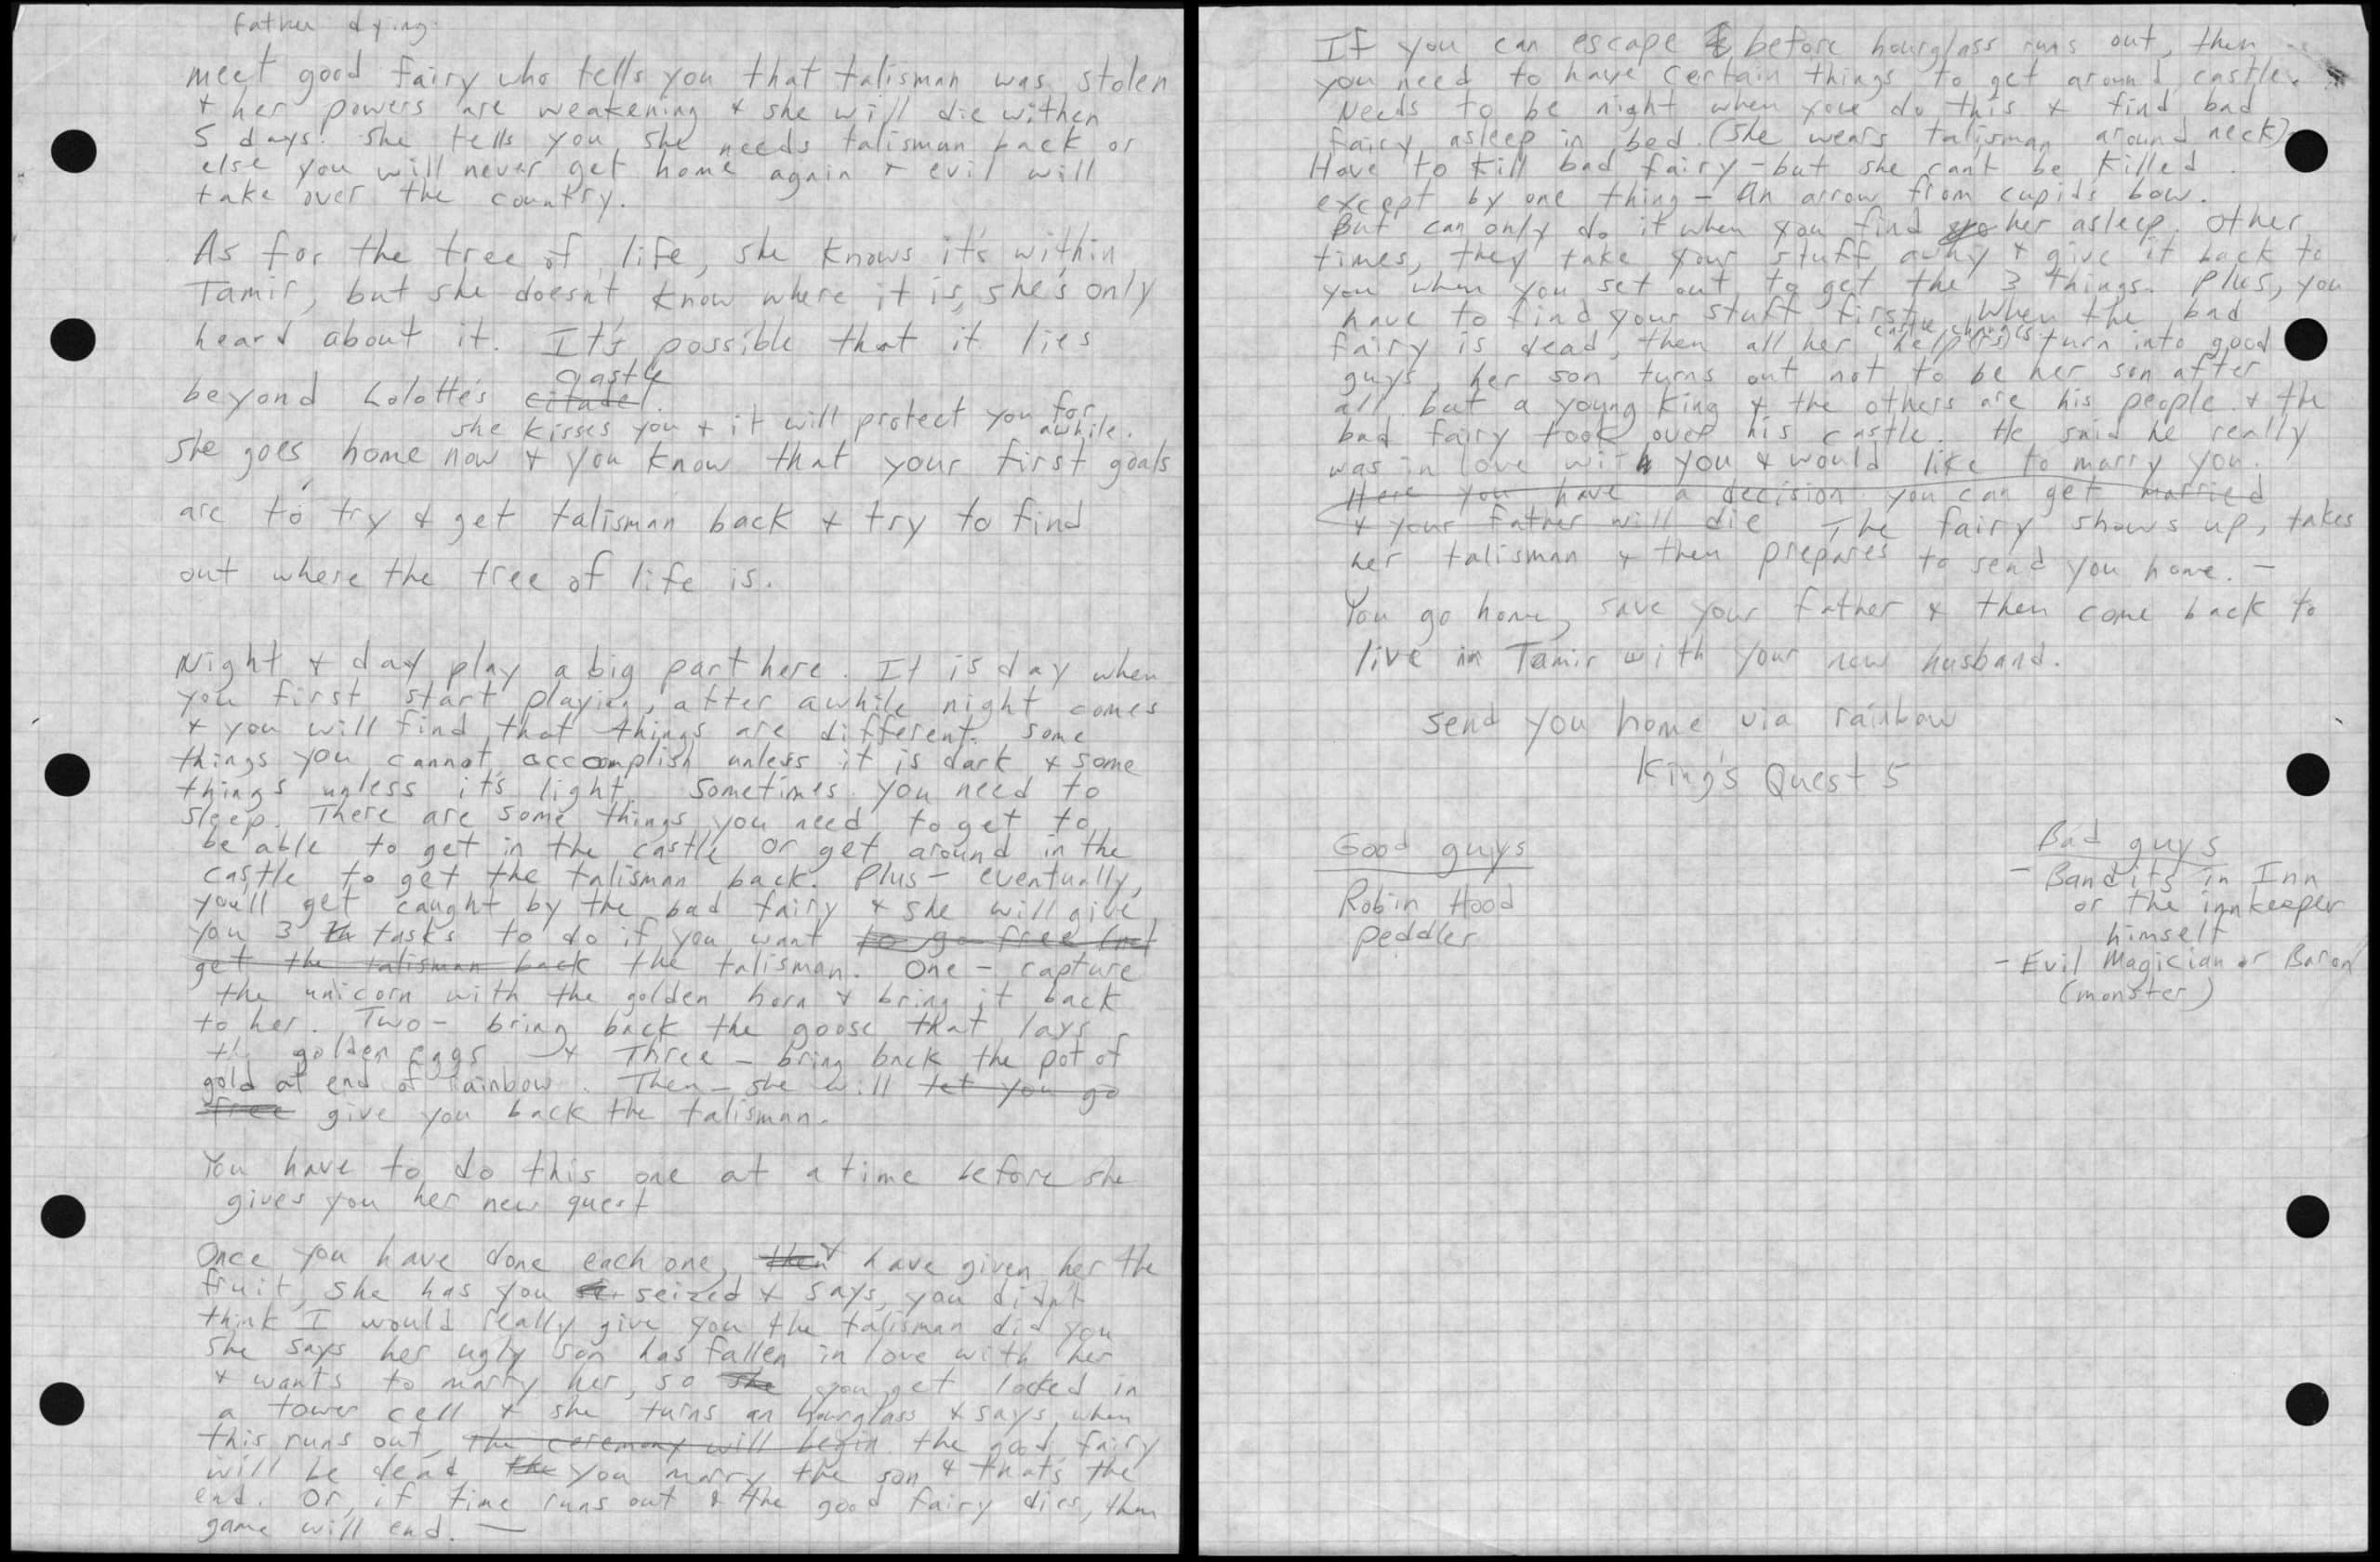 Father dying
meet good fairy who tells you that talisman was stolen
+ her powers are weakening + she will die withen
5 days. She tells you she needs talisman back or
else you will never get home again + evil will
take over the country.
As for the tree of life, she knows it's within
Tamir, but she doesnt know where it is, she's only
heard about it. It's possible that it lies
castle
beyond Lolotte's citadel.
she kisses you + it will protect you for awhile.
She goes home now + you know that your first goals
are to try + get talisman back + try to find
out where the tree of life is.
Night + day play a big part here. It is day when
you first start playing, after awhile night comes
+ you will find that things are different. Some
things you cannot accomplish unless it is dark + some
things unless it's light. Sometimes you need to
sleep. There are some things you need to get to
be able to get in the castle or get around in the
castle to get the talisman back. Plus - eventually,
you'll get caught by the bad fairy + she will give
you 3 tasks to do if you want to go free (not
get the talisman back the talisman. One - capture
the unicorn with the golden horn + bring it back
to her. Two - bring back the goose that lays
the golden eggs + Three - bring back the pot of
gold at end of rainbow. Then - she will let you go
free give you back the talisman.
You have to do this one at a time before she
gives you her new quest
Once you have done each one, then + have given her the
fruit, she has you seized + says, you didn't
think I would really give you the talisman did you
She says her ugly son has fallen in love with her
+ wants to marry her, so she you get locked in
a tower cell + she turns an hourglass + says, when
this runs out, the ceremony will begin the good fairy
will be dead, the you marry the son + that's the
end. Or, if time runs out + the good fairy dies, then
game will end. —
If you can escape before hourglass runs out, then
you need to have certain things to get around castle.
Needs to be night when you do this + find bad
fairy asleep in bed. (She wears talisman around neck)
Have to kill bad fairy - but she cant be killed
except by one thing - An arrow from cupids bow.
But can only do it when you find her asleep. Other
times, they take your stuff away + give it back to
you when you set out to get the 3 things. Plus, you
have to find your stuff first. When the bad
castle changes
fairy is dead, then all her helpers turn into good
guys, her son turns out not to be her son after
all but a young King + the others are his people + the
bad fairy took over his castle. He said he really
was in love with you + would like to marry you.
Here you have a decision you can get married
+ your father will die The fairy shows up, takes
her talisman + then prepares to send you home. —
You go home, save your father + then come back to
live in Tamir with your new husband.
send you home via rainbow
King's Quest 5
Good guys
Robin Hood
peddler
Bad guys
- Bandits in Inn
or the innkeeper
himself
- Evil Magician or Baron
(monster)